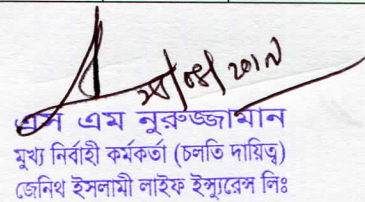 ২৮/০৪/২০১৮
এস এম নুরুজ্জামান
মুখ্য নির্বাহী কর্মকর্তা (চলতি দায়িত্ব)
জেনিথ ইসলামী লাইফ ইন্স্যুরেন্স লিঃ